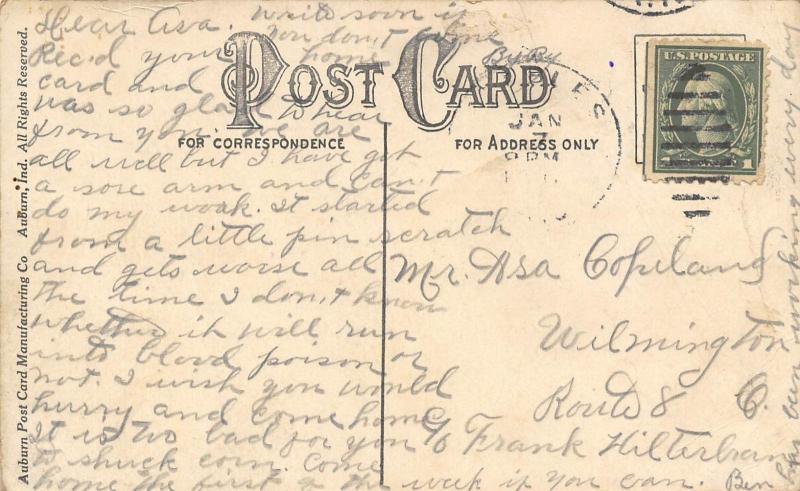 Dear Asa. Write soon if
you don't come
home By By
Rec.d your
card and
was so glad to hear
from you. We are
all well but I have got
a sore arm and can.t
do my work. It started
from a little pin scratch
and gets worse all
the time I don,t know
whether it will run
into blood poison or
not. I wish you would
hurry and come home
It is too bad for you
to shuck corn. Come
home the first of the week if you can. Ben
has been working every day
POST CARD
FOR CORRESPONDENCE
FOR ADDRESS ONLY
JAN
7
8 PM
U.S. POSTAGE
1 1
Mr. Asa Copeland
Wilmington
Route 8 O.
c/o Frank Hilterbran
Auburn Post Card Manufacturing Co Auburn, Ind. All Rights Reserved.